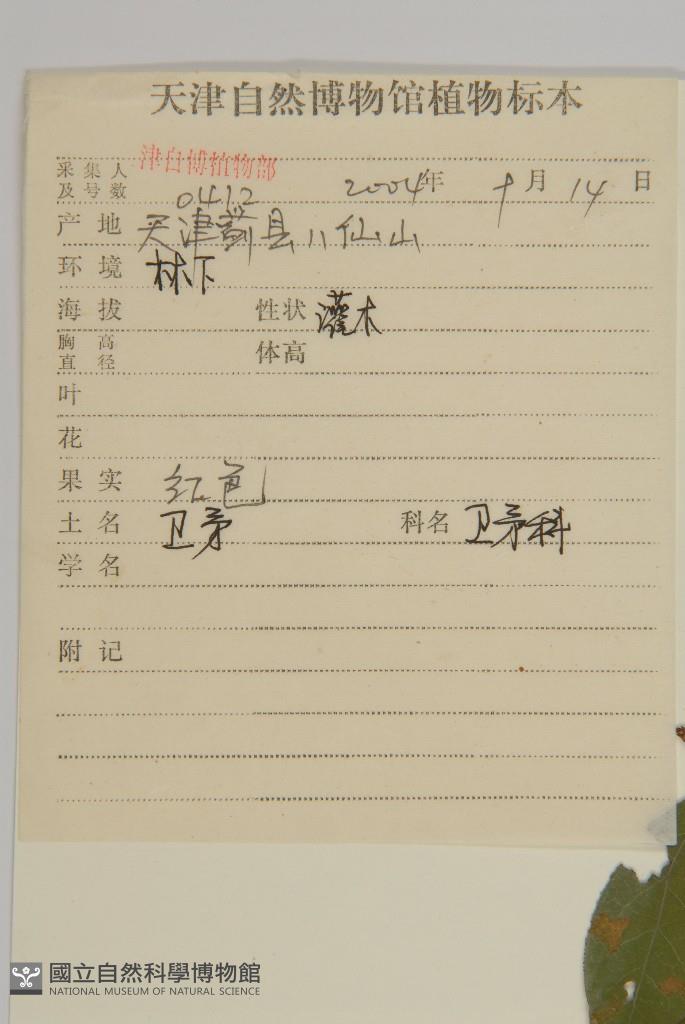 天津自然博物馆植物标本
采集人及号数 津自博植物部 0412 2004年 十月 14日
产地 天津蓟县八仙山
环境 林下
海拔 性状 灌木
胸高直径 体高
叶
花
果实 红色
土名 卫矛 科名 卫矛科
学名
附记
國立自然科學博物館
NATIONAL MUSEUM OF NATURAL SCIENCE